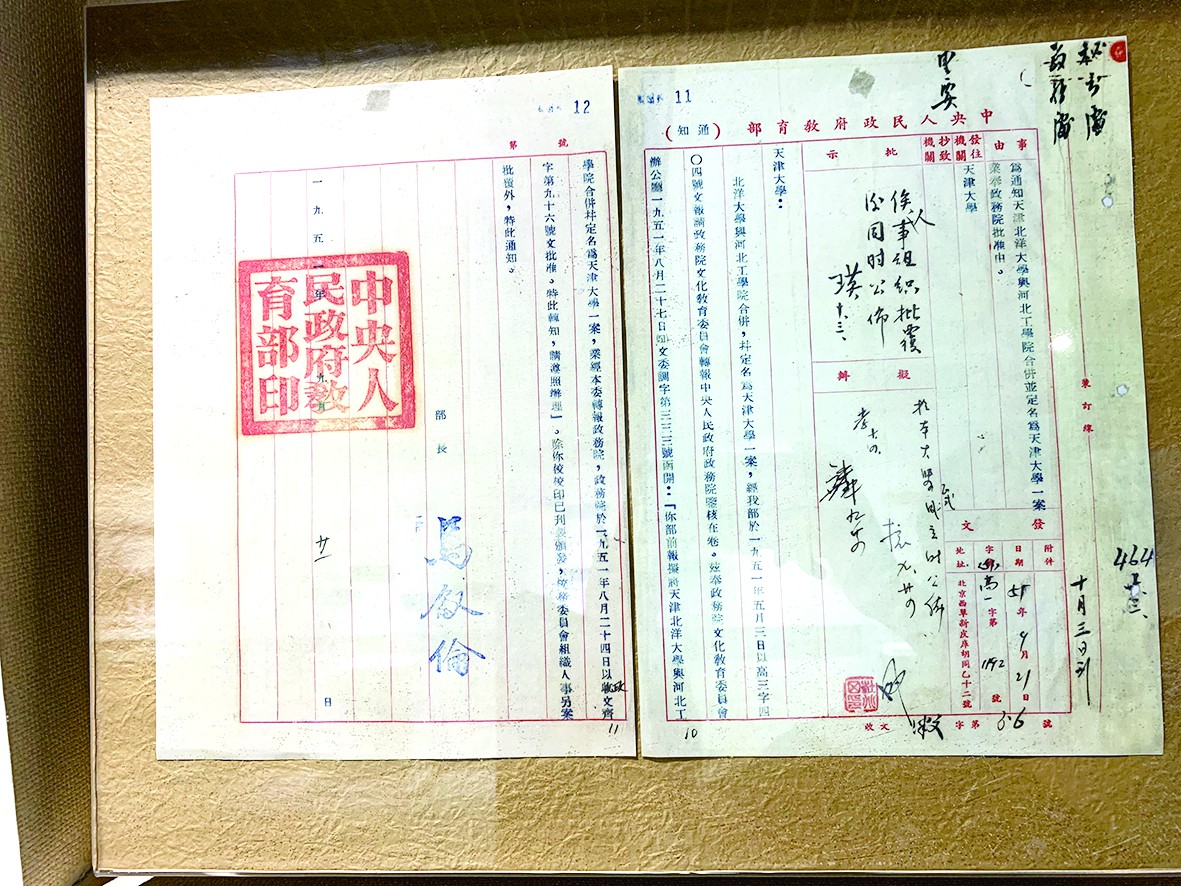 11
中央人民政府教育部（通知）
事由
爲通知天津北洋大學與河北工學院合併並定名爲天津大學一案
業奉政務院批准由。
發往機關
抄致機關
天津大學
發文
附件
日期 51年9月21日
字號 高一字第1192號
地址 北京西單新皮庫胡同乙十二號
批示
俟人事組織批覆
後同時公佈
擬辦
天津大學：
北洋大學與河北工學院合併，并定名爲天津大學一案，經我部於一九五一年五月三日以高三字四
〇四號文報請政務院文化教育委員會轉報中央人民政府政務院鑒核在卷。茲奉政務院文化教育委員會
辦公廳一九五一年八月二十七日文委調字第三三三號函開：「你部前報擬將天津北洋大學與河北工
收文 字第36號
裝訂線
464
十月三日到
10
12
號
第
學院合併并定名爲天津大學一案，業經本委轉報政務院，政務院於一九五一年八月二十四日以政文齊
字第九十六號文批准。特此轉知，請遵照辦理」。除你校校印已刊製頒發，校務委員會組織人事另案
批覆外，特此通知。
部長
馬敘倫
一九五一年九月廿一日
中央人民政府教育部印
11